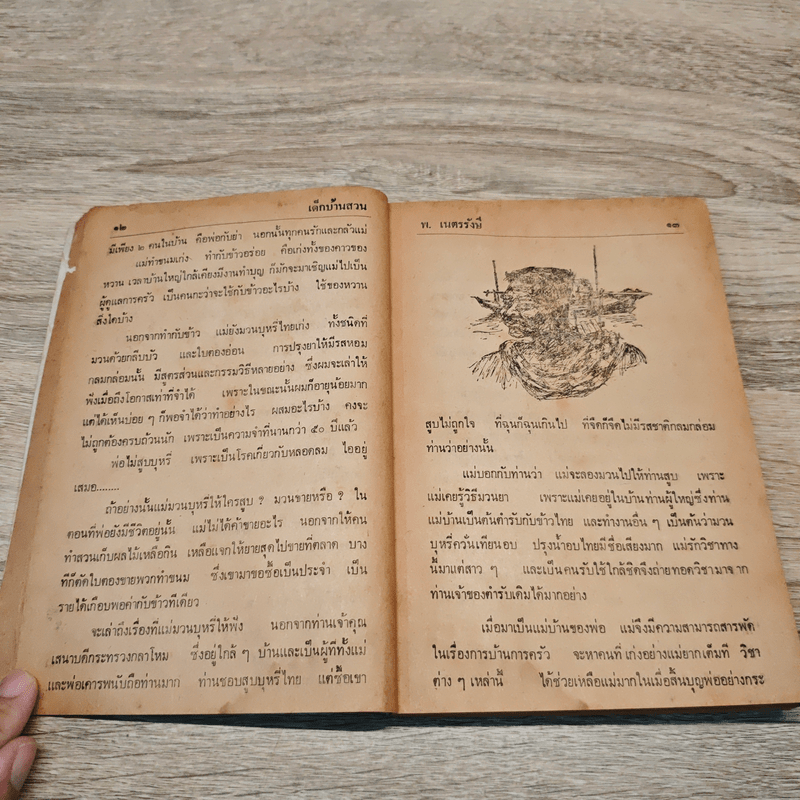 ๑๒ เด็กบ้านสวน
มีเพียง ๒ คนในบ้าน คือพ่อกับย่า นอกนั้นทุกคนรักและกลัวแม่
แม่ทำขนมเก่ง ทำกับข้าวอร่อย คือเก่งทั้งของคาวของ
หวาน เวลาบ้านใหญ่ใกล้เคียงมีงานทำบุญ ก็มักจะมาเชิญแม่ไปเป็น
ผู้ดูแลการครัว เป็นคนกะว่าจะใช้กับข้าวอะไรบ้าง ใช้ของหวาน
สิ่งใดบ้าง
นอกจากทำกับข้าว แม่ยังมวนบุหรี่ไทยเก่ง ทั้งชนิดที่
มวนด้วยกลีบบัว และใบตองอ่อน การปรุงยาให้มีรสหอม
กลมกล่อมนั้น มีสูตรส่วนและกรรมวิธีหลายอย่าง ซึ่งผมจะเล่าให้
ฟังเมื่อถึงโอกาสเท่าที่จำได้ เพราะในขณะนั้นผมก็อายุน้อยมาก
แต่ได้เห็นบ่อย ๆ ก็พอจำได้ว่าทำอย่างไร ผสมอะไรบ้าง คงจะ
ไม่ถูกต้องครบถ้วนนัก เพราะเป็นความจำที่นานกว่า ๕๐ ปีแล้ว
พ่อไม่สูบบุหรี่ เพราะเป็นโรคเกี่ยวกับหลอดลม ไออยู่
เสมอ........
ถ้าอย่างนั้นแม่มวนบุหรี่ให้ใครสูบ ? มวนขายหรือ ? ใน
ตอนที่พ่อยังมีชีวิตอยู่นั้น แม่ไม่ได้ค้าขายอะไร นอกจากให้คน
ทำสวนเก็บผลไม้เหลือกิน เหลือแจกให้ยายสุดไปขายที่ตลาด บาง
ทีก็ตัดใบตองขายพวกทำขนม ซึ่งเขามาขอซื้อเป็นประจำ เป็น
รายได้เกือบพอค่ากับข้าวทีเดียว
จะเล่าถึงเรื่องที่แม่มวนบุหรี่ให้ฟัง นอกจากท่านเจ้าคุณ
เสนาบดีกระทรวงกลาโหม ซึ่งอยู่ใกล้ ๆ บ้านและเป็นผู้ที่ทั้งแม่
และพ่อเคารพนับถือท่านมาก ท่านชอบสูบบุหรี่ไทย แต่ซื้อเขา
พ. เนตรรังษี ๑๓
สูบไม่ถูกใจ ที่ฉุนก็ฉุนเกินไป ที่จืดก็จืดไม่มีรสชาติกลมกล่อม
ท่านว่าอย่างนั้น
แม่บอกกับท่านว่า แม่จะลองมวนไปให้ท่านสูบ เพราะ
แม่เคยรู้วิธีมวนยา เพราะแม่เคยอยู่ในบ้านท่านผู้ใหญ่ซึ่งท่าน
แม่บ้านเป็นต้นตำรับกับข้าวไทย และทำงานอื่น ๆ เป็นต้นว่ามวน
บุหรี่ควั่นเทียนอบ ปรุงน้ำอบไทยมีชื่อเสียงมาก แม่รักวิชาทาง
นี้มาแต่สาว ๆ และเป็นคนรับใช้ใกล้ชิดจึงถ่ายทอดวิชามาจาก
ท่านเจ้าของตำรับเดิมได้มากอย่าง
เมื่อมาเป็นแม่บ้านของพ่อ แม่จึงมีความสามารถสารพัด
ในเรื่องการบ้านการครัว จะหาคนที่เก่งอย่างแม่ยากเต็มที วิชา
ต่าง ๆ เหล่านี้ ได้ช่วยเหลือแม่มากในเมื่อสิ้นบุญพ่ออย่างกระ